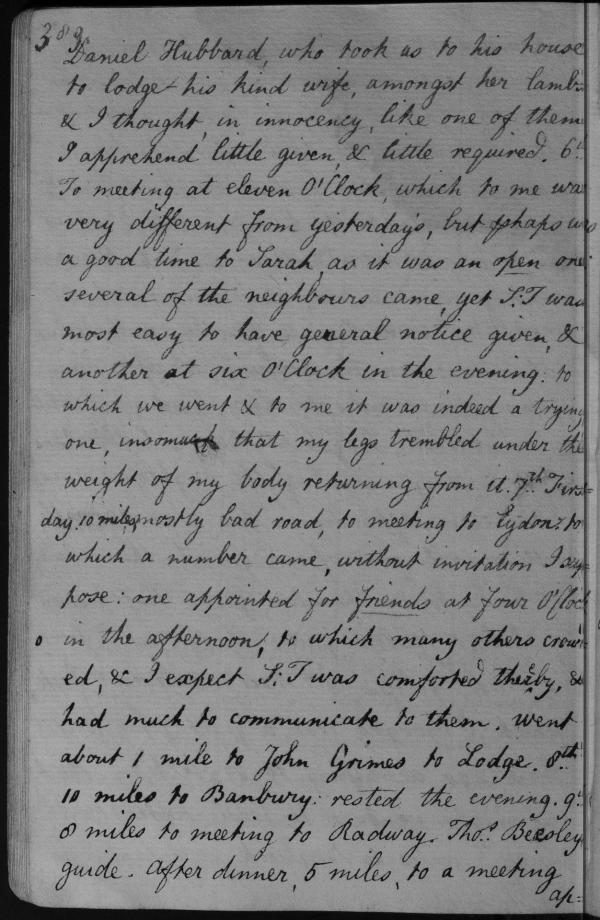 389
Daniel Hubbard, who took us to his house
to lodge his kind wife, amongst her lambs
& I thought, in innocency, like one of them
I apprehend little given, & little required. 6th
To meeting at eleven O'Clock, which to me was
very different from yesterday's, but phaps was
a good time to Sarah, as it was an open one
several of the neighbours came, yet S:T was
most easy to have general notice given, &
another at six O'Clock in the evening: to
which we went & to me it was indeed a trying
one, insomuch that my legs trembled under the
weight of my body returning from it. 7th First=
day. 10 miles, mostly bad road, to meeting to Eydon: to
which a number came, without invitation I sup=
pose: one appointed for friends at four O'Clock
in the afternoon, to which many others crowd=
ed, & I expect S:T was comforted thereby, &
had much to communicate to them. Went
about 1 mile to John Grimes to Lodge. 8th
10 miles to Banbury: rested the evening. 9th
8 miles to meeting to Radway. Thos. Beesley
guide. After dinner, 5 miles, to a meeting
ap=